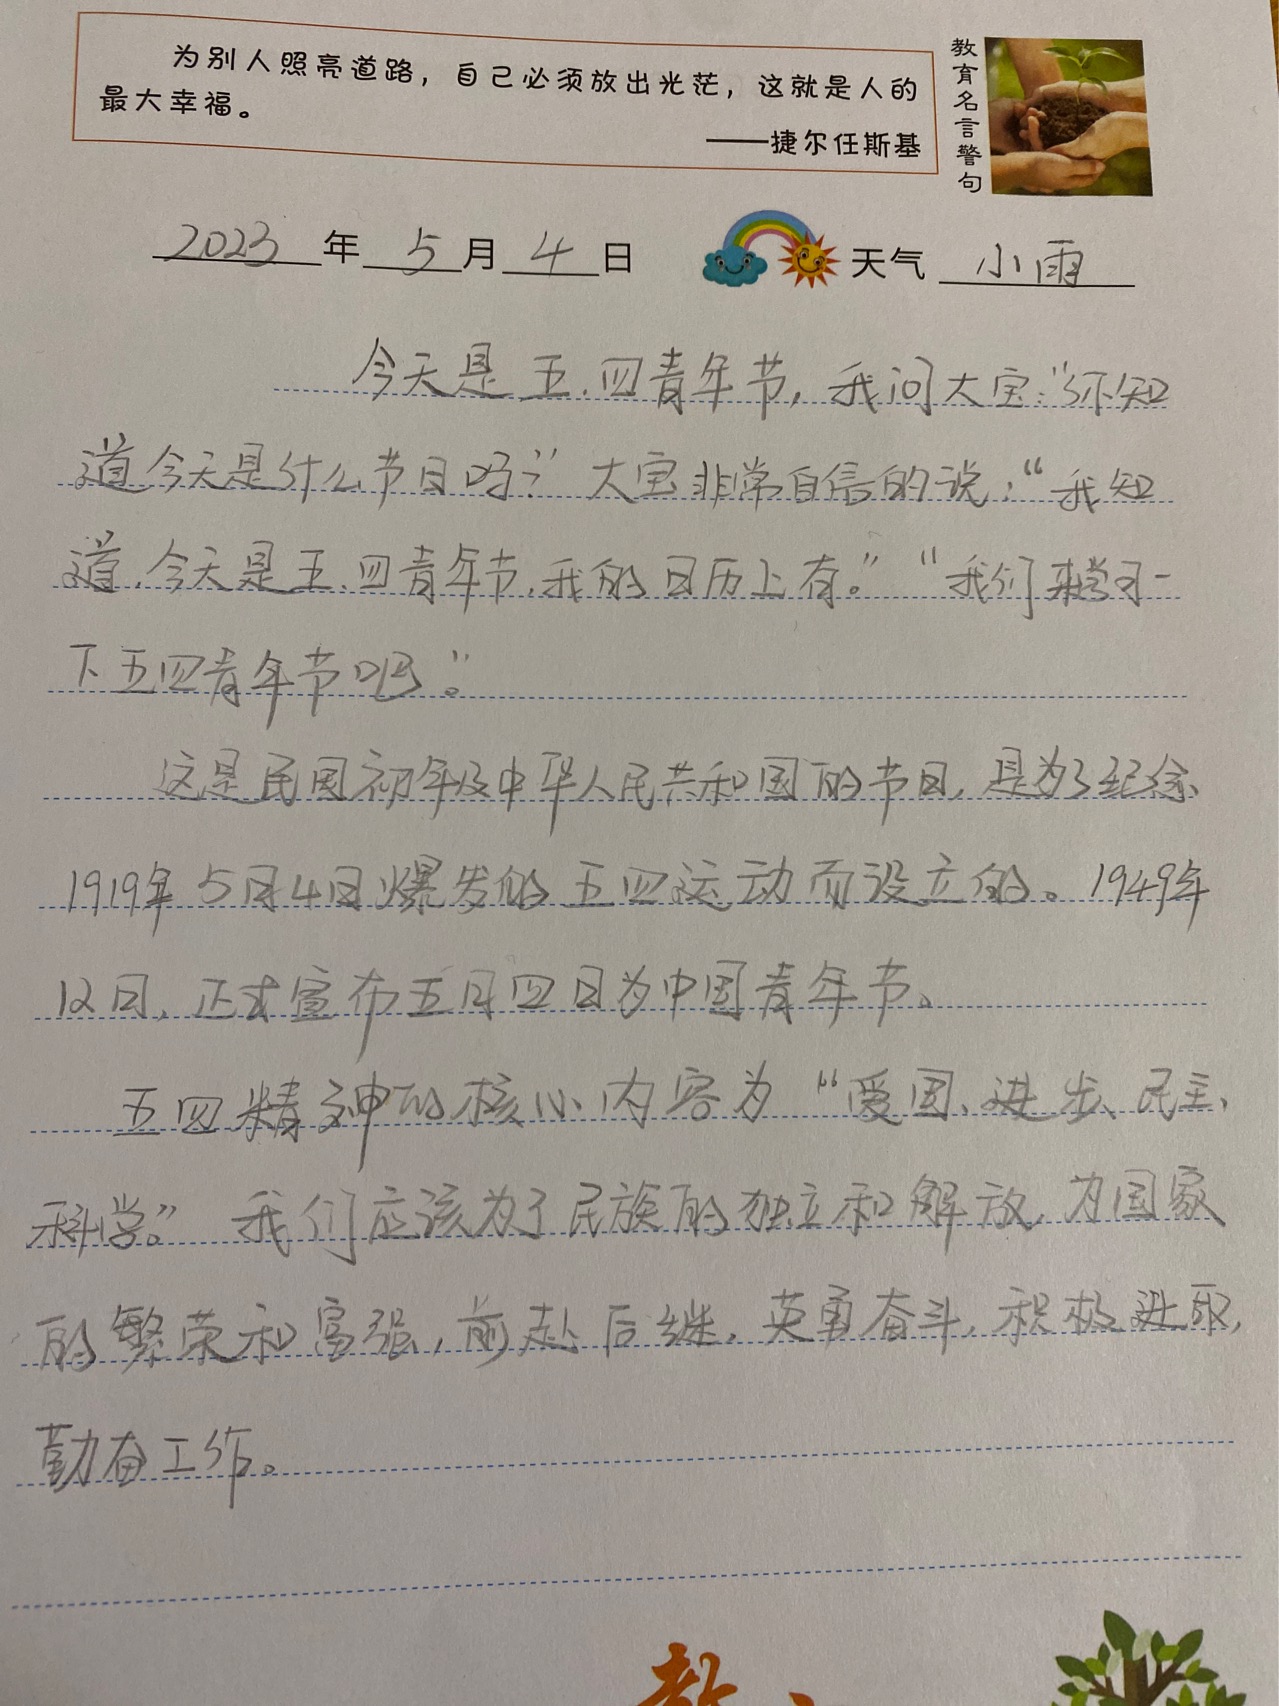 为别人照亮道路，自己必须放出光茫，这就是人的
最大幸福。
——捷尔任斯基
教育名言警句
2023年5月4日 天气 小雨
今天是五.四青年节，我问大宝："你知
道今天是什么节日吗？"大宝非常自信的说："我知
道，今天是五.四青年节，我的日历上有。""我们来学习一
下五四青年节吧。"
这是民国初年及中华人民共和国的节日，是为了纪念
1919年5月4日爆发的五四运动而设立的。1949年
12日，正式宣布五月四日为中国青年节。
五四精神的核心内容为"爱国、进步、民主、
科学。"我们应该为了民族的独立和解放，为国家
的繁荣和富强，前赴后继，英勇奋斗，积极进取，
勤奋工作。